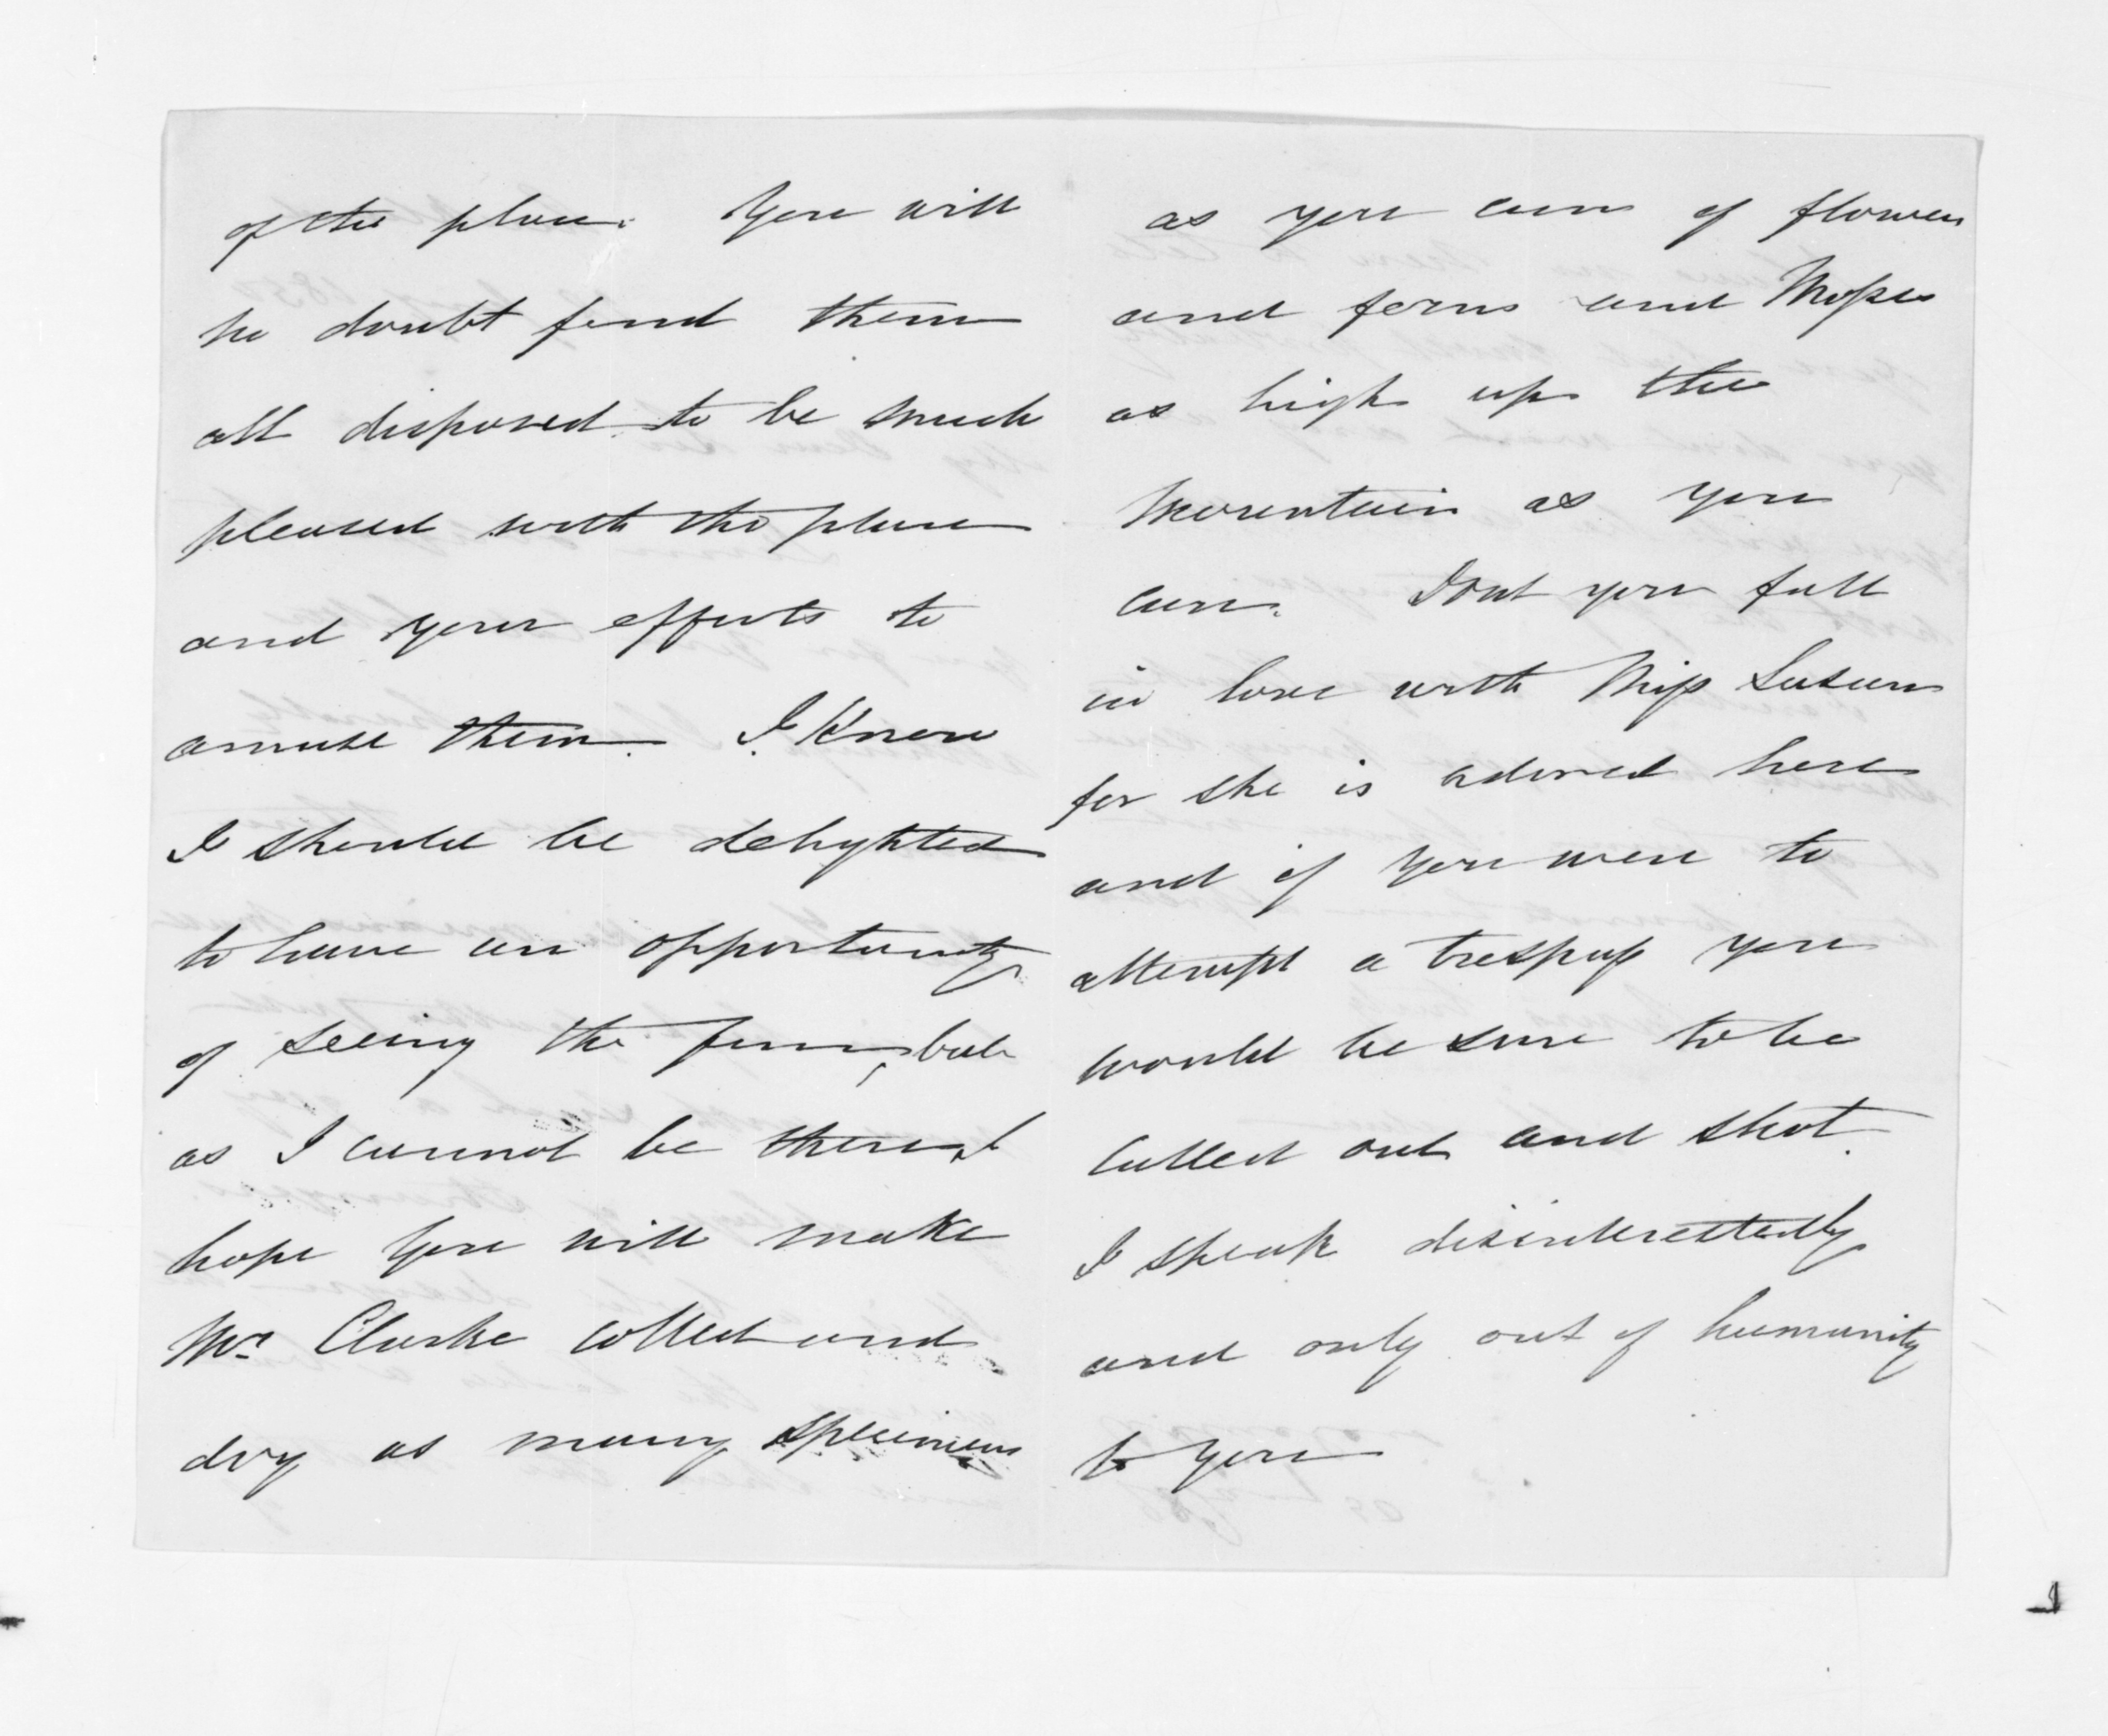 of the place. You will
no doubt find them
all disposed to be much
pleased with the place
and your efforts to
amuse them. I Know
I should be delighted
to have an opportunity
of seeing the ferns, but
as I cannot be there, I
hope you will make
Mr Clarke collect and
dry as many specimens
as you can of flowers
and ferns and Mosses
as high up the
Mountain as you
can. Dont you fall
in love with Miss Susan
for she is adored here
and if you were to
attempt a trespass you
would be sure to be
called out and shot.
I speak disinterestedly
and only out of humanity
to you